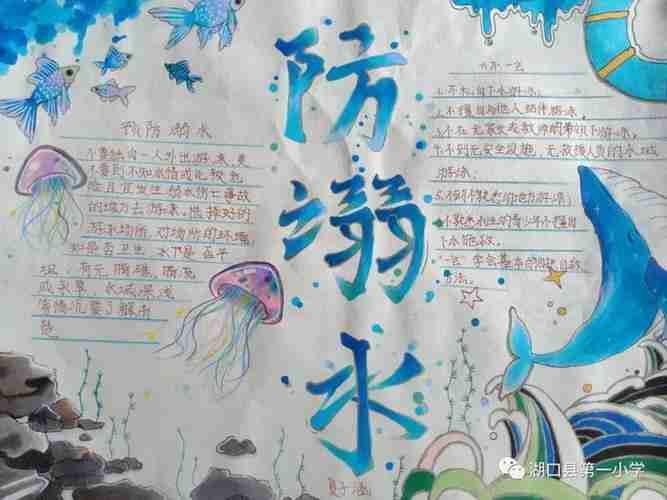 防溺水
预防溺水
不要独自一人外出游泳,更
不要到不知水情或比较危
险且宜发生溺水伤亡事故
的地方去游泳。选择好的
游泳场所,对场所的环境,
如是否卫生,水下是否平
坦,有无暗礁,暗流
杂草,水域深浅
等情况要了解清
楚。
六不一会
1.不私自下水游泳;
2.不擅自与他人结伴游泳;
3.不在无家长或教师带领下游泳;
4.不到无安全设施、无救援人员的水域
游泳;
5.不到不熟悉的地方游泳;
不熟悉水性的青少年不擅自
下水施救。
"一会"学会基本的自救
方法。
湖口县第一小学